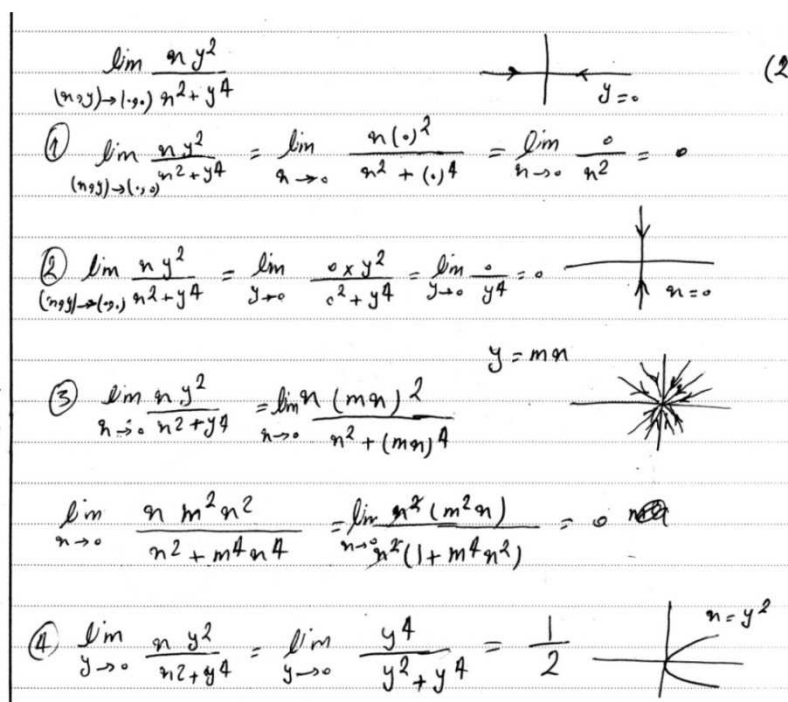 lim xy²/(x²+y⁴) (x,y)→(0,0) y=0 (2
① lim (x,y)→(0,0) xy²/(x²+y⁴) = lim x→0 x(0)²/(x²+(0)⁴) = lim x→0 0/x² = 0
② lim (x,y)→(0,0) xy²/(x²+y⁴) = lim y→0 0×y²/(0²+y⁴) = lim y→0 0/y⁴ = 0 x=0
y=mx
③ lim x→0 xy²/(x²+y⁴) = lim x→0 x(mx)²/(x²+(mx)⁴)
lim x→0 x m²x²/(x²+m⁴x⁴) = lim x→0 x²(m²x)/(x²(1+m⁴x²)) = 0
④ lim y→0 xy²/(x²+y⁴) = lim y→0 y⁴/(y²+y⁴) = 1/2 x=y²